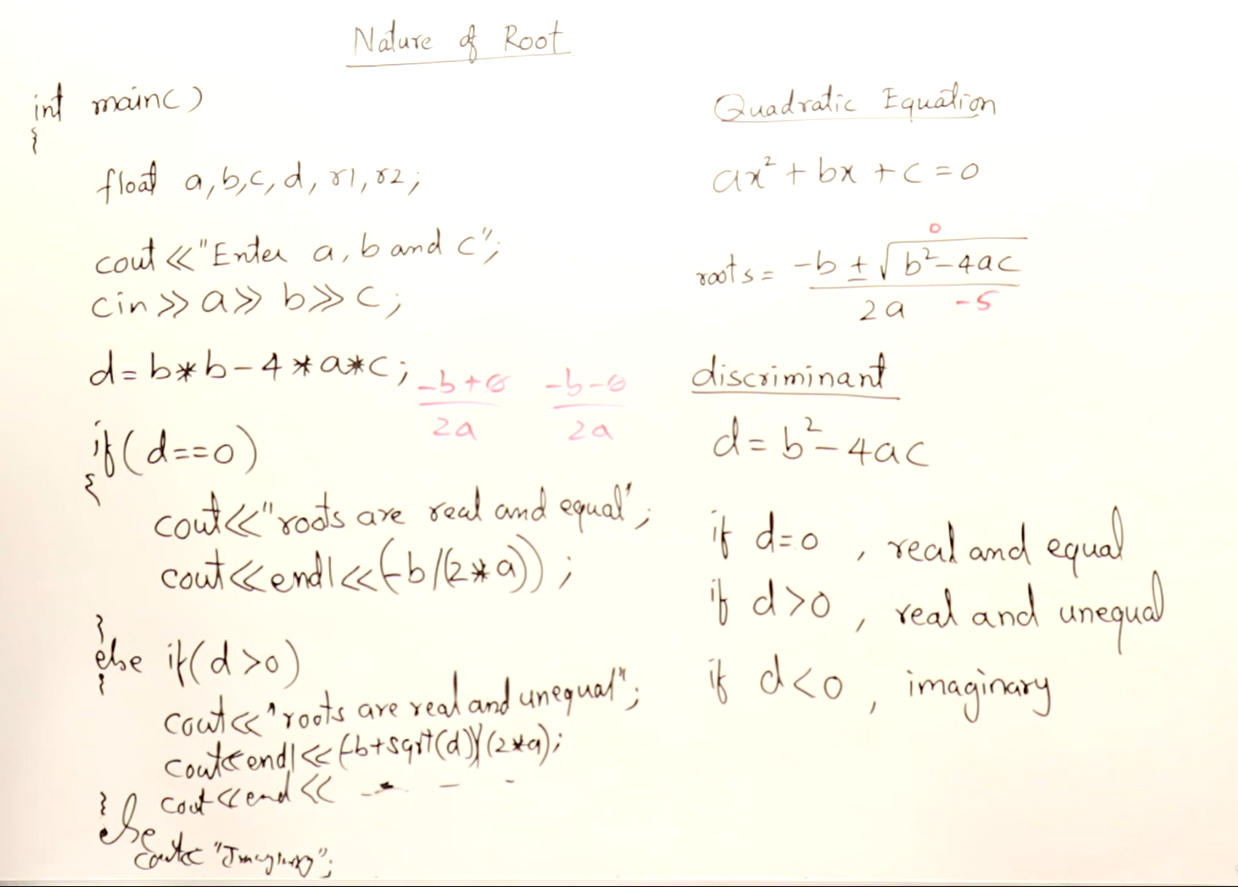 Nature of Root
int main()
{
float a,b,c,d,r1,r2;
cout<<"Enter a,b and c";
cin>>a>>b>>c;
d=b*b-4*a*c;
-b+0 -b-0
2a 2a
if(d==0)
{
cout<<"roots are real and equal";
cout<<endl<<(-b/(2*a));
}
else if(d>0)
{
cout<<"roots are real and unequal";
cout<<endl<<(-b+sqrt(d))/(2*a);
cout<<end<< - - -
}
else
"Imaginary";
Quadratic Equation
ax²+bx+c=0
0
roots = -b±√b²-4ac
2a -5
discriminant
d=b²-4ac
if d=0, real and equal
if d>0, real and unequal
if d<0, imaginary